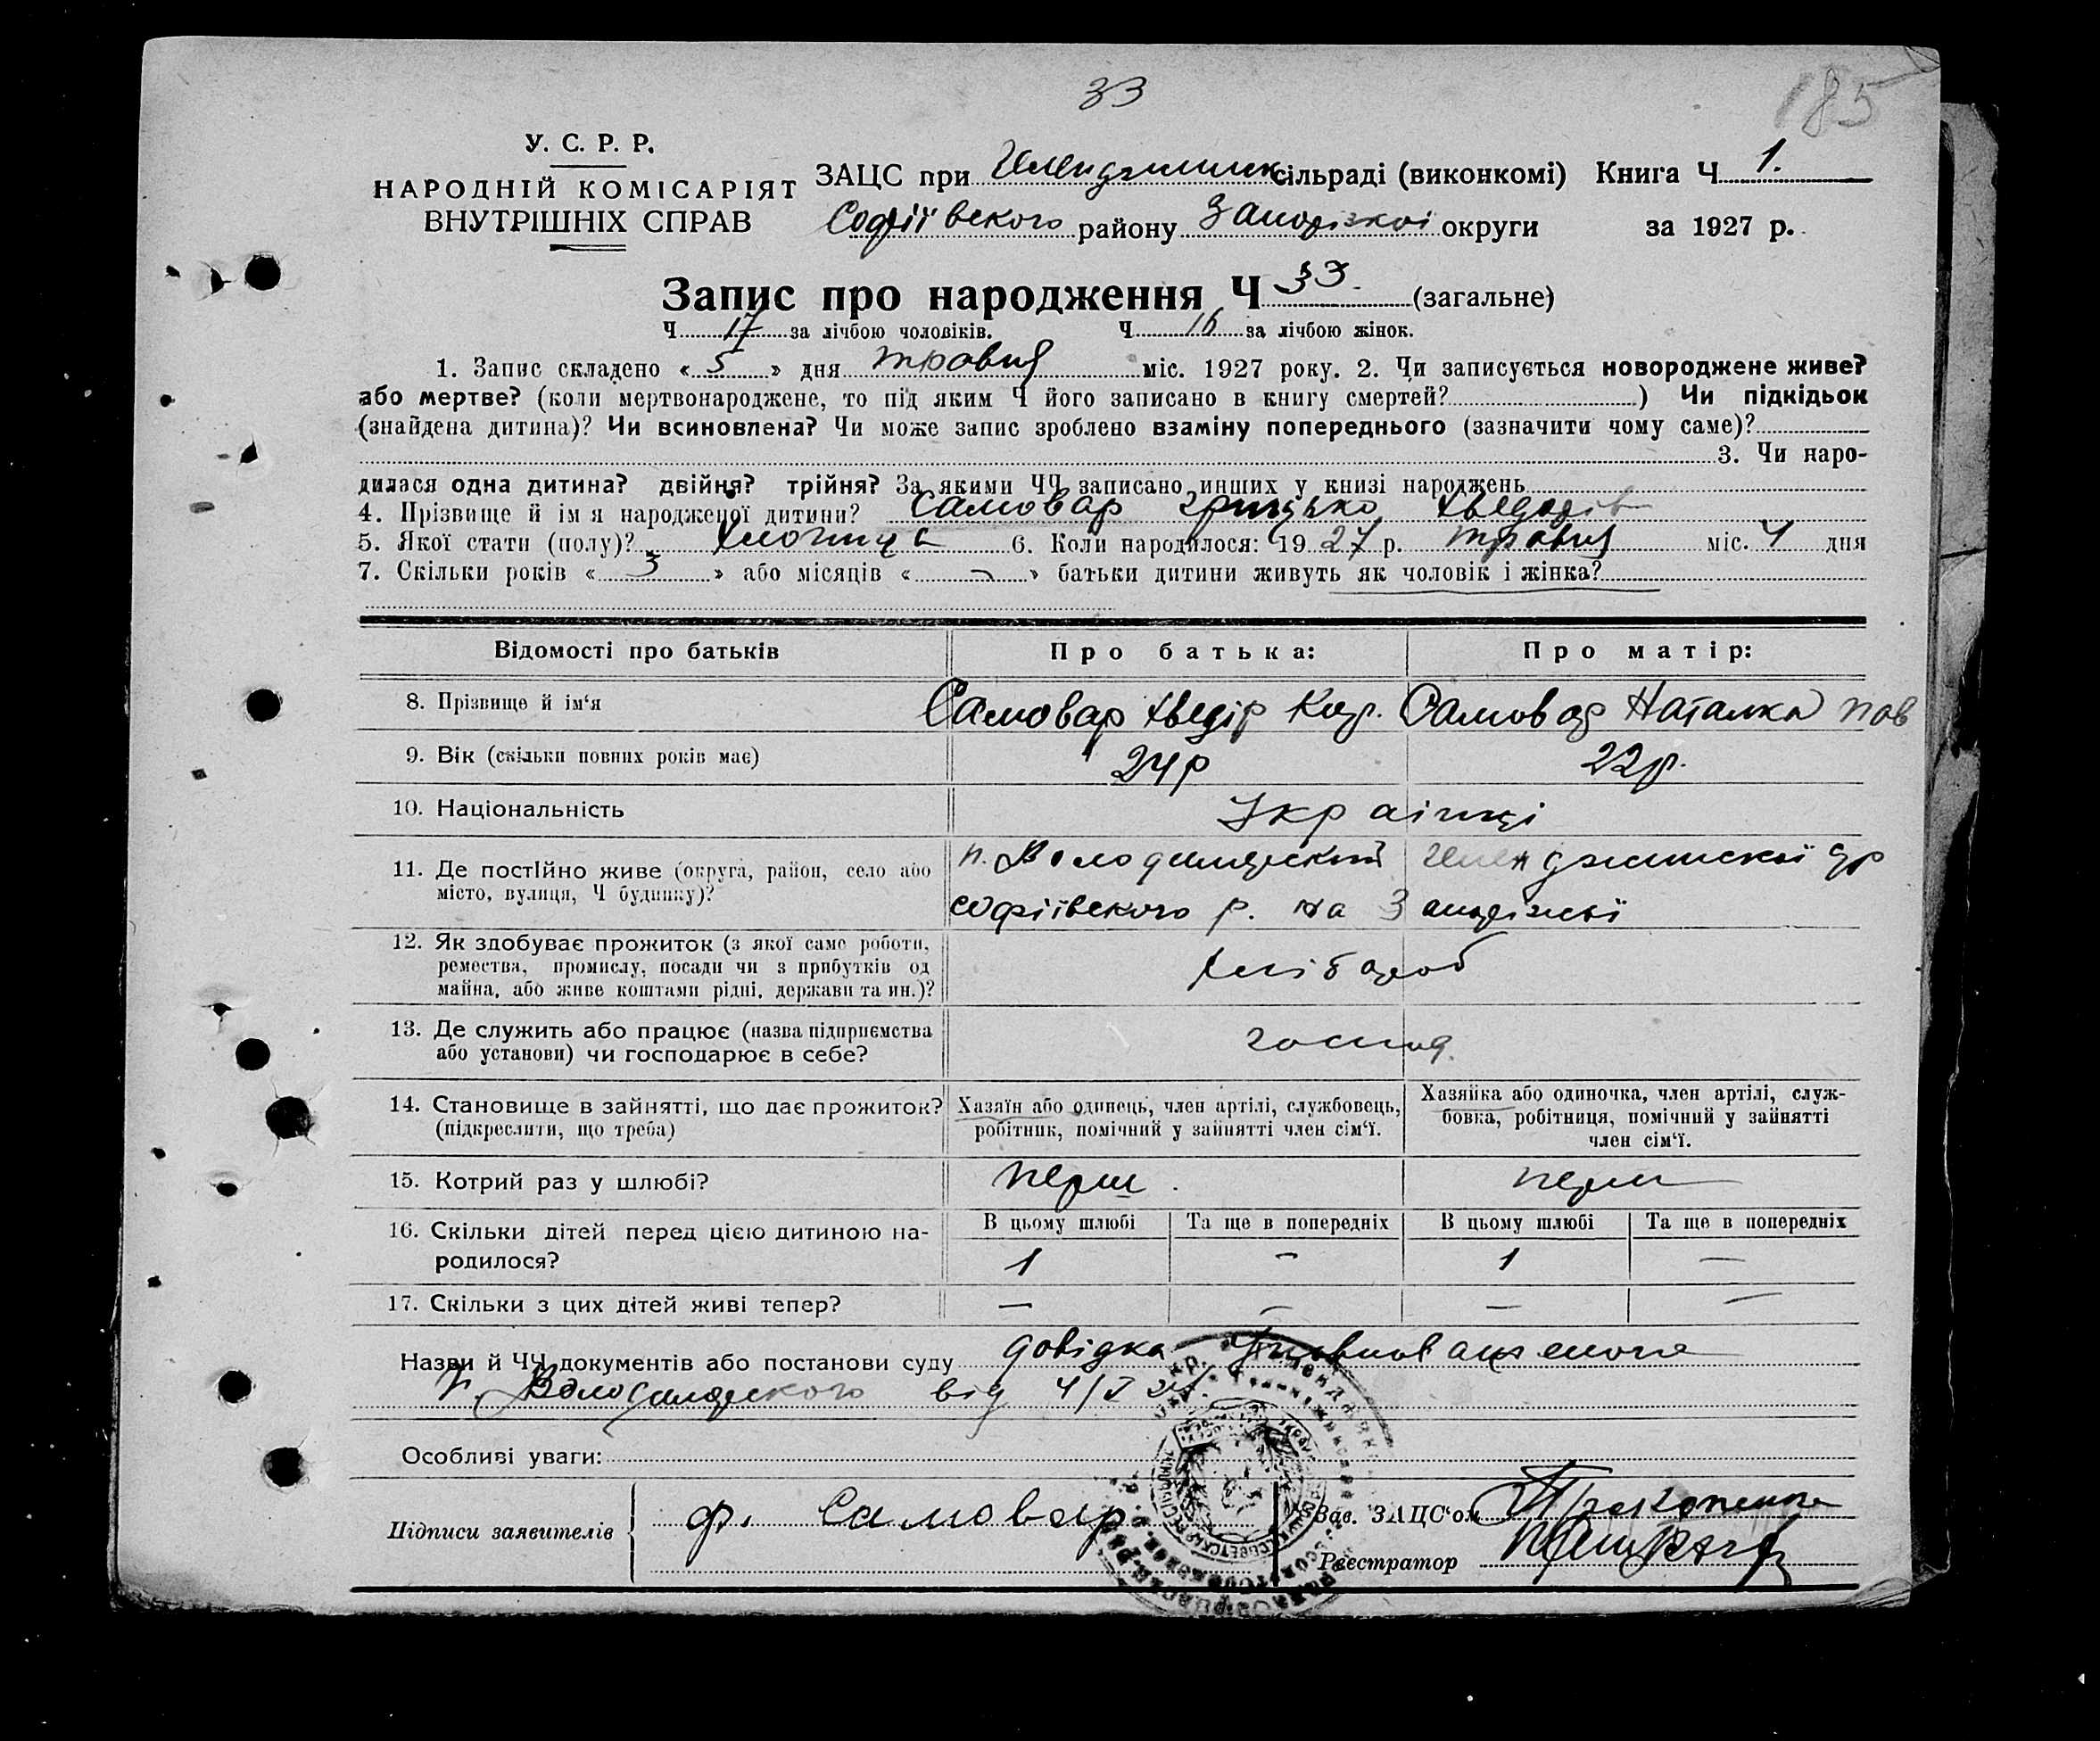 33
185
У. С. Р. Р.
НАРОДНІЙ КОМІСАРІЯТ
ВНУТРІШНІХ СПРАВ
ЗАЦС при сільраді (виконкомі) Книга Ч 1.
Софіївського району Запорізкої округи за 1927 р.
Запис про народження Ч 33. (загальне)
Ч 17 за лічбою чоловіків. Ч 16 за лічбою жінок.
1. Запис складено « 5 » дня травня міс. 1927 року. 2. Чи записується новороджене живе?
або мертве? (коли мертвонароджене, то під яким Ч його записано в книгу смертей? ) Чи підкідьок
(знайдена дитина)? Чи всиновлена? Чи може запис зроблено взаміну попереднього (зазначити чому саме)?
3. Чи наро-
дилася одна дитина? двійня? трійня? За якими ЧЧ записано инших у книзі народжень
4. Прізвище й ім я народженої дитини? Самовар Грицько Хведорів
5. Якої стати (полу)? Хлопиця 6. Коли народилося: 19 27 р. травня міс. 4 дня
7. Скільки років « 3 » або місяців « – » батьки дитини живуть як чоловік і жінка?
Відомості про батьків Про батька: Про матір:
8. Прізвище й ім‘я Самовар Хведір Кар. Самовар Наталка Пав
9. Вік (скільки повних років має) 24р 22р.
10. Національність Українці
11. Де постІйно живе (округа, район, село або
місто, вулиця, Ч будинку)?
п. Володимирский р
софіївского р. на Запоріжьї
12. Як здобуває прожиток (з якої саме роботи,
ремества, промислу, посади чи з прибутків од
майна, або живе коштами рідні, держави та ин.)?
хлібороб
13. Де служить або працює (назва підприємства
або установи) чи господарює в себе?
господ.
14. Становище в зайнятті, що дає прожиток?
(підкреслити, що треба)
Хазяїн або одинець, член артілі, службовець,
робітник, помічний у зайнятті член сім‘ї.
Хазяйка або одиночка, член артілі, служ-
бовка, робітниця, помічний у зайнятті
член сім‘ї.
15. Котрий раз у шлюбі? перш. перш
16. Скільки дітей перед цією дитиною на-
родилося?
В цьому шлюбі Та ще в попередніх В цьому шлюбі Та ще в попередніх
1 – 1 –
17. Скільки з цих дітей живі тепер? – – – –
Назви й ЧЧ документів або постанови суду довідка Уповноваженого
п. Володимирского від 4/V 27.
Особливі уваги:
Підписи заявителів ф. Самовар
Зав. ЗАЦС‘ом Прокопенко
Реєстратор